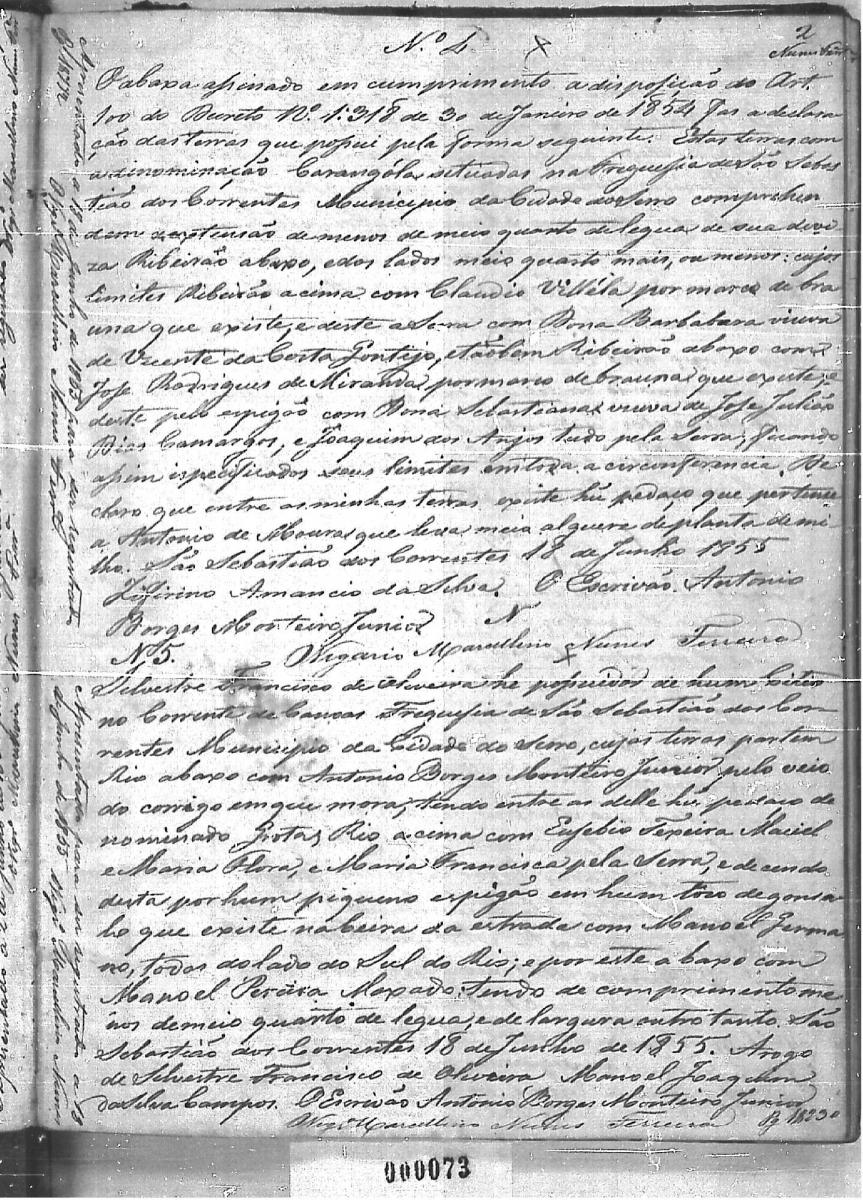 2
Nunes Ferr
N.º 4.
O abaxo assinado em cumprimento a disposição do Art.
100 do Decreto Nº. 1.318 de 30 de Janeiro de 1854 fas a declara
ção das terras que possui pela forma seguinte: Estas terras com
a dinominação Carangóla, situadas na Freguesia de São Sebas
tião dos Correntes Municipio da Cidade do Serro comprehen
dem a extensão de menos de meio quarto de legua de sua devi
za Ribeirão abaxo, e dos lados meio quarto mais, ou menos: cujos
limites Ribeirão acima com Claudio Villéla por marco de bra
una que existe, e deste a Serra com Dona Barbabara viuva
de Vicente da Costa Gontijo, e tãobem Ribeirão abaxo com
Jose Rodrigues de Miranda por marco de brauna que existe, e
deste pelo espigão com Dona Sebastiana viuva de Jose Julião
Dias Camargos, e Joaquim dos Anjos tudo pela Serra, ficando
assim ispecificados seus limites em toda a circonferencia. De
claro que entre as minhas terras existe hũ pedaço que pertence
a Antonio de Moura que leva meia alquere de planta de mi
lho. São Sebastião dos Correntes 18 de Junho 1855
Zifirino Amancio da Silva. O Escrivão Antonio
Borges Monteiro Junior
Vigario Marcellino Nunes Ferreira
Nº 5.
Silvestre Francisco de Oliveira he possuidor de hum Citio
no Corrente de Canoas Freguesia de São Sebastião dos Cor
rentes Municipio da Cidade do Serro, cujas terras partem
Rio abaxo com Antonio Borges Monteiro Junior pelo veio
do corrigo em que mora, tendo entre as delle hũ pedaço de
nominado Grota, Rio acima com Eusebio Texeira Maciel
e Maria Flora, e Maria Francisca pela Serra, e decendo
desta por hum piqueno espigão em hum toco de gonsa
lo que existe na beira da estrada com Manoel Germa
no, todas do lado do Sul do Rio; e por este abaxo com
Manoel Pereira Moxado, tendo de comprimento me
nos de meio quarto de legua, e de largura outro tanto. São
Sebastião dos Correntes 18 de Junho de 1855. Arogo
de Silvestre Francisco de Oliveira Manoel Joaquim
da Silva Campos. O Escrivão Antonio Borges Monteiro Junior
Vigrº Marcellino Nunes Ferreira
Apresentado a 18 de Junho de 1855 para ser registrado
Vigrº Marcellino Nunes Ferrª
Apresentado para ser registrado a 18
de Junho de 1855 Vigrº Marcellino Nunes
000073